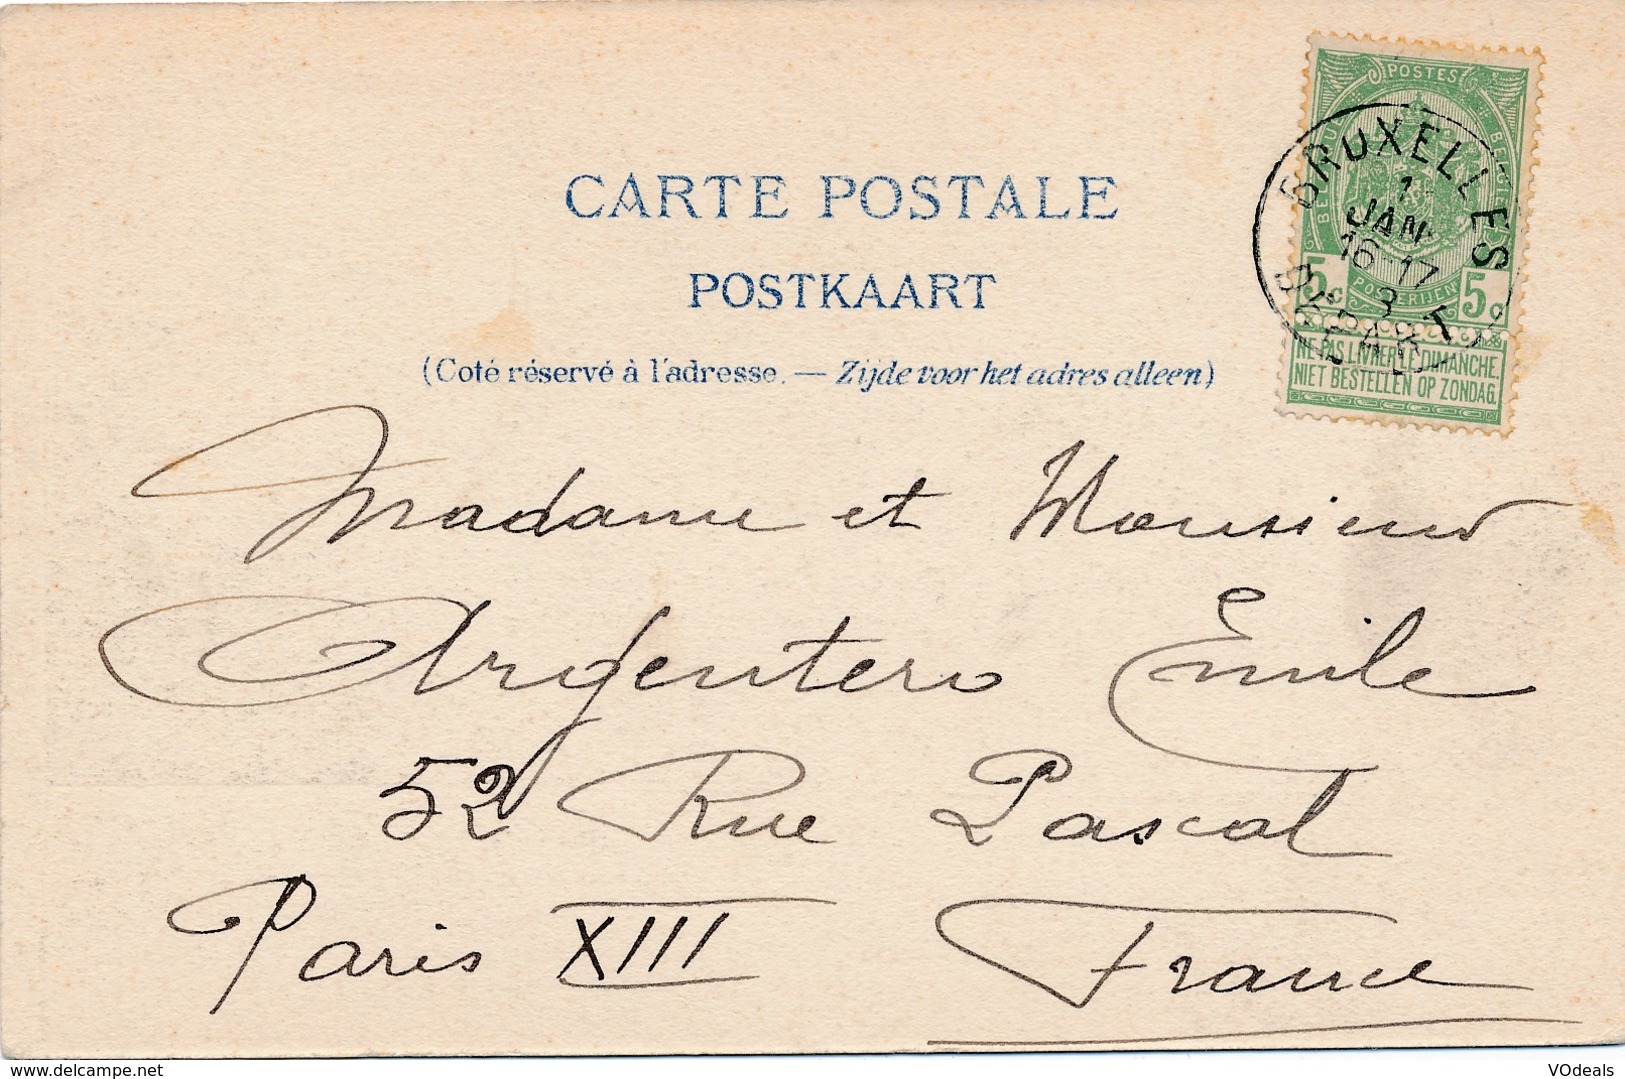 POSTES
BELGIQUE
BELGIE
BRUXELLES
1
JAN
16-17
5c POSTERIJEN 5c
BRUSSEL
NE PAS LIVRER LE DIMANCHE.
NIET BESTELLEN OP ZONDAG.
CARTE POSTALE
POSTKAART
(Coté réservé à l'adresse. — Zijde voor het adres alleen)
Madame et Monsieur
Argentero Émile
52 Rue Pascal
Paris XIII France
delcampe.net
VOdeals